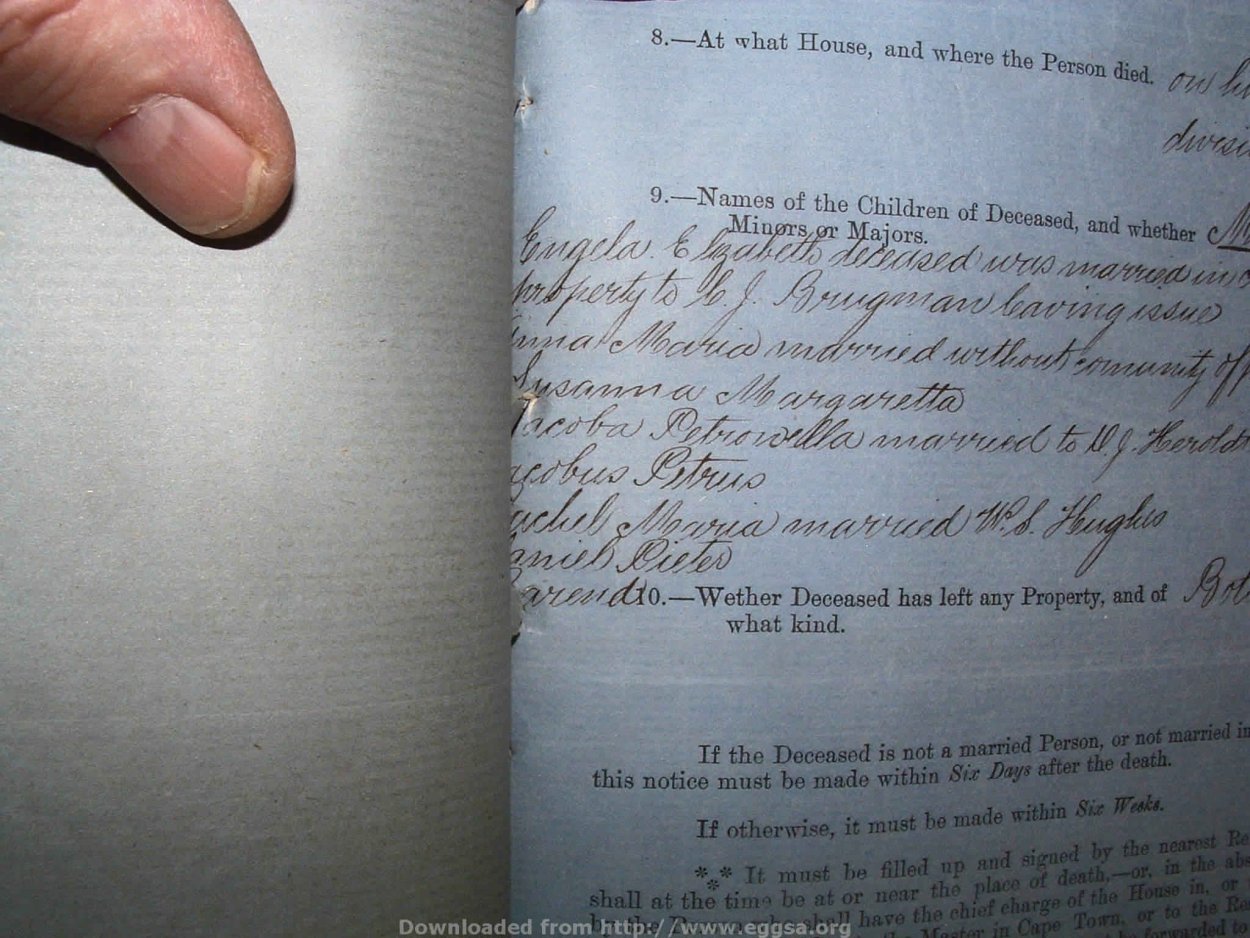 8.—At what House, and where the Person died. on
9.—Names of the Children of Deceased, and whether
Minors or Majors.
Engela Elizabeth deceased was married in
property to C. J. Brugman leaving issue
Anna Maria married without comunity of
Susanna Margaretta
Jacoba Petrowella married to D. J. Heroldt
Jacobus Petrus
Rachel Maria married W. S. Hughes
Daniel Pieter
Barend
10.—Wether Deceased has left any Property, and of
what kind.
If the Deceased is not a married Person, or not married in
this notice must be made within Six Days after the death.
If otherwise, it must be made within Six Weeks.
*** It must be filled up and signed by the nearest
shall at the time be at or near the place of death,—or, in the
by the Person who shall have the chief charge of the House in, or
the Master in Cape Town, or to the
be forwarded to
Downloaded from http://www.eggsa.org